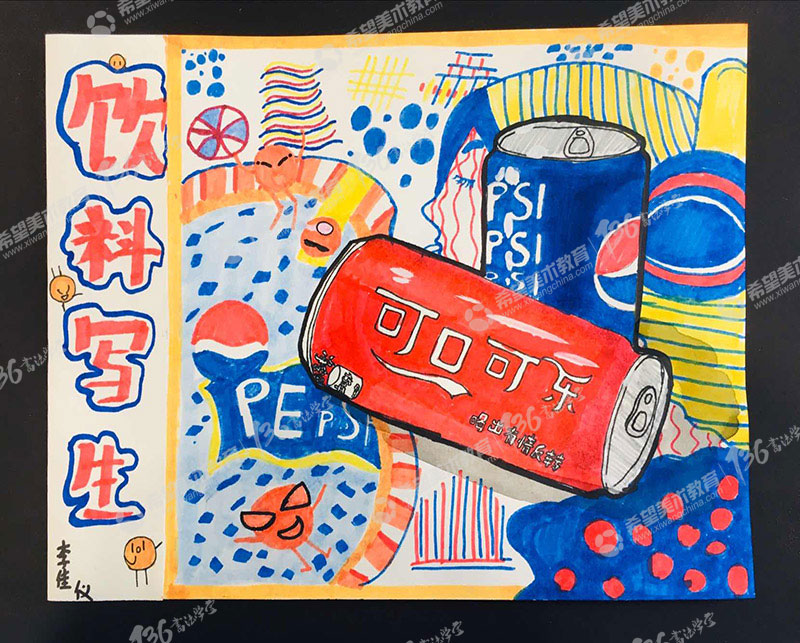 饮料写生
李佳仪
PSI
PSI
PSI
可口可乐
喝出有情反转
PEPSI
希望美术教育
www.xiwangchina.com
136书法学堂